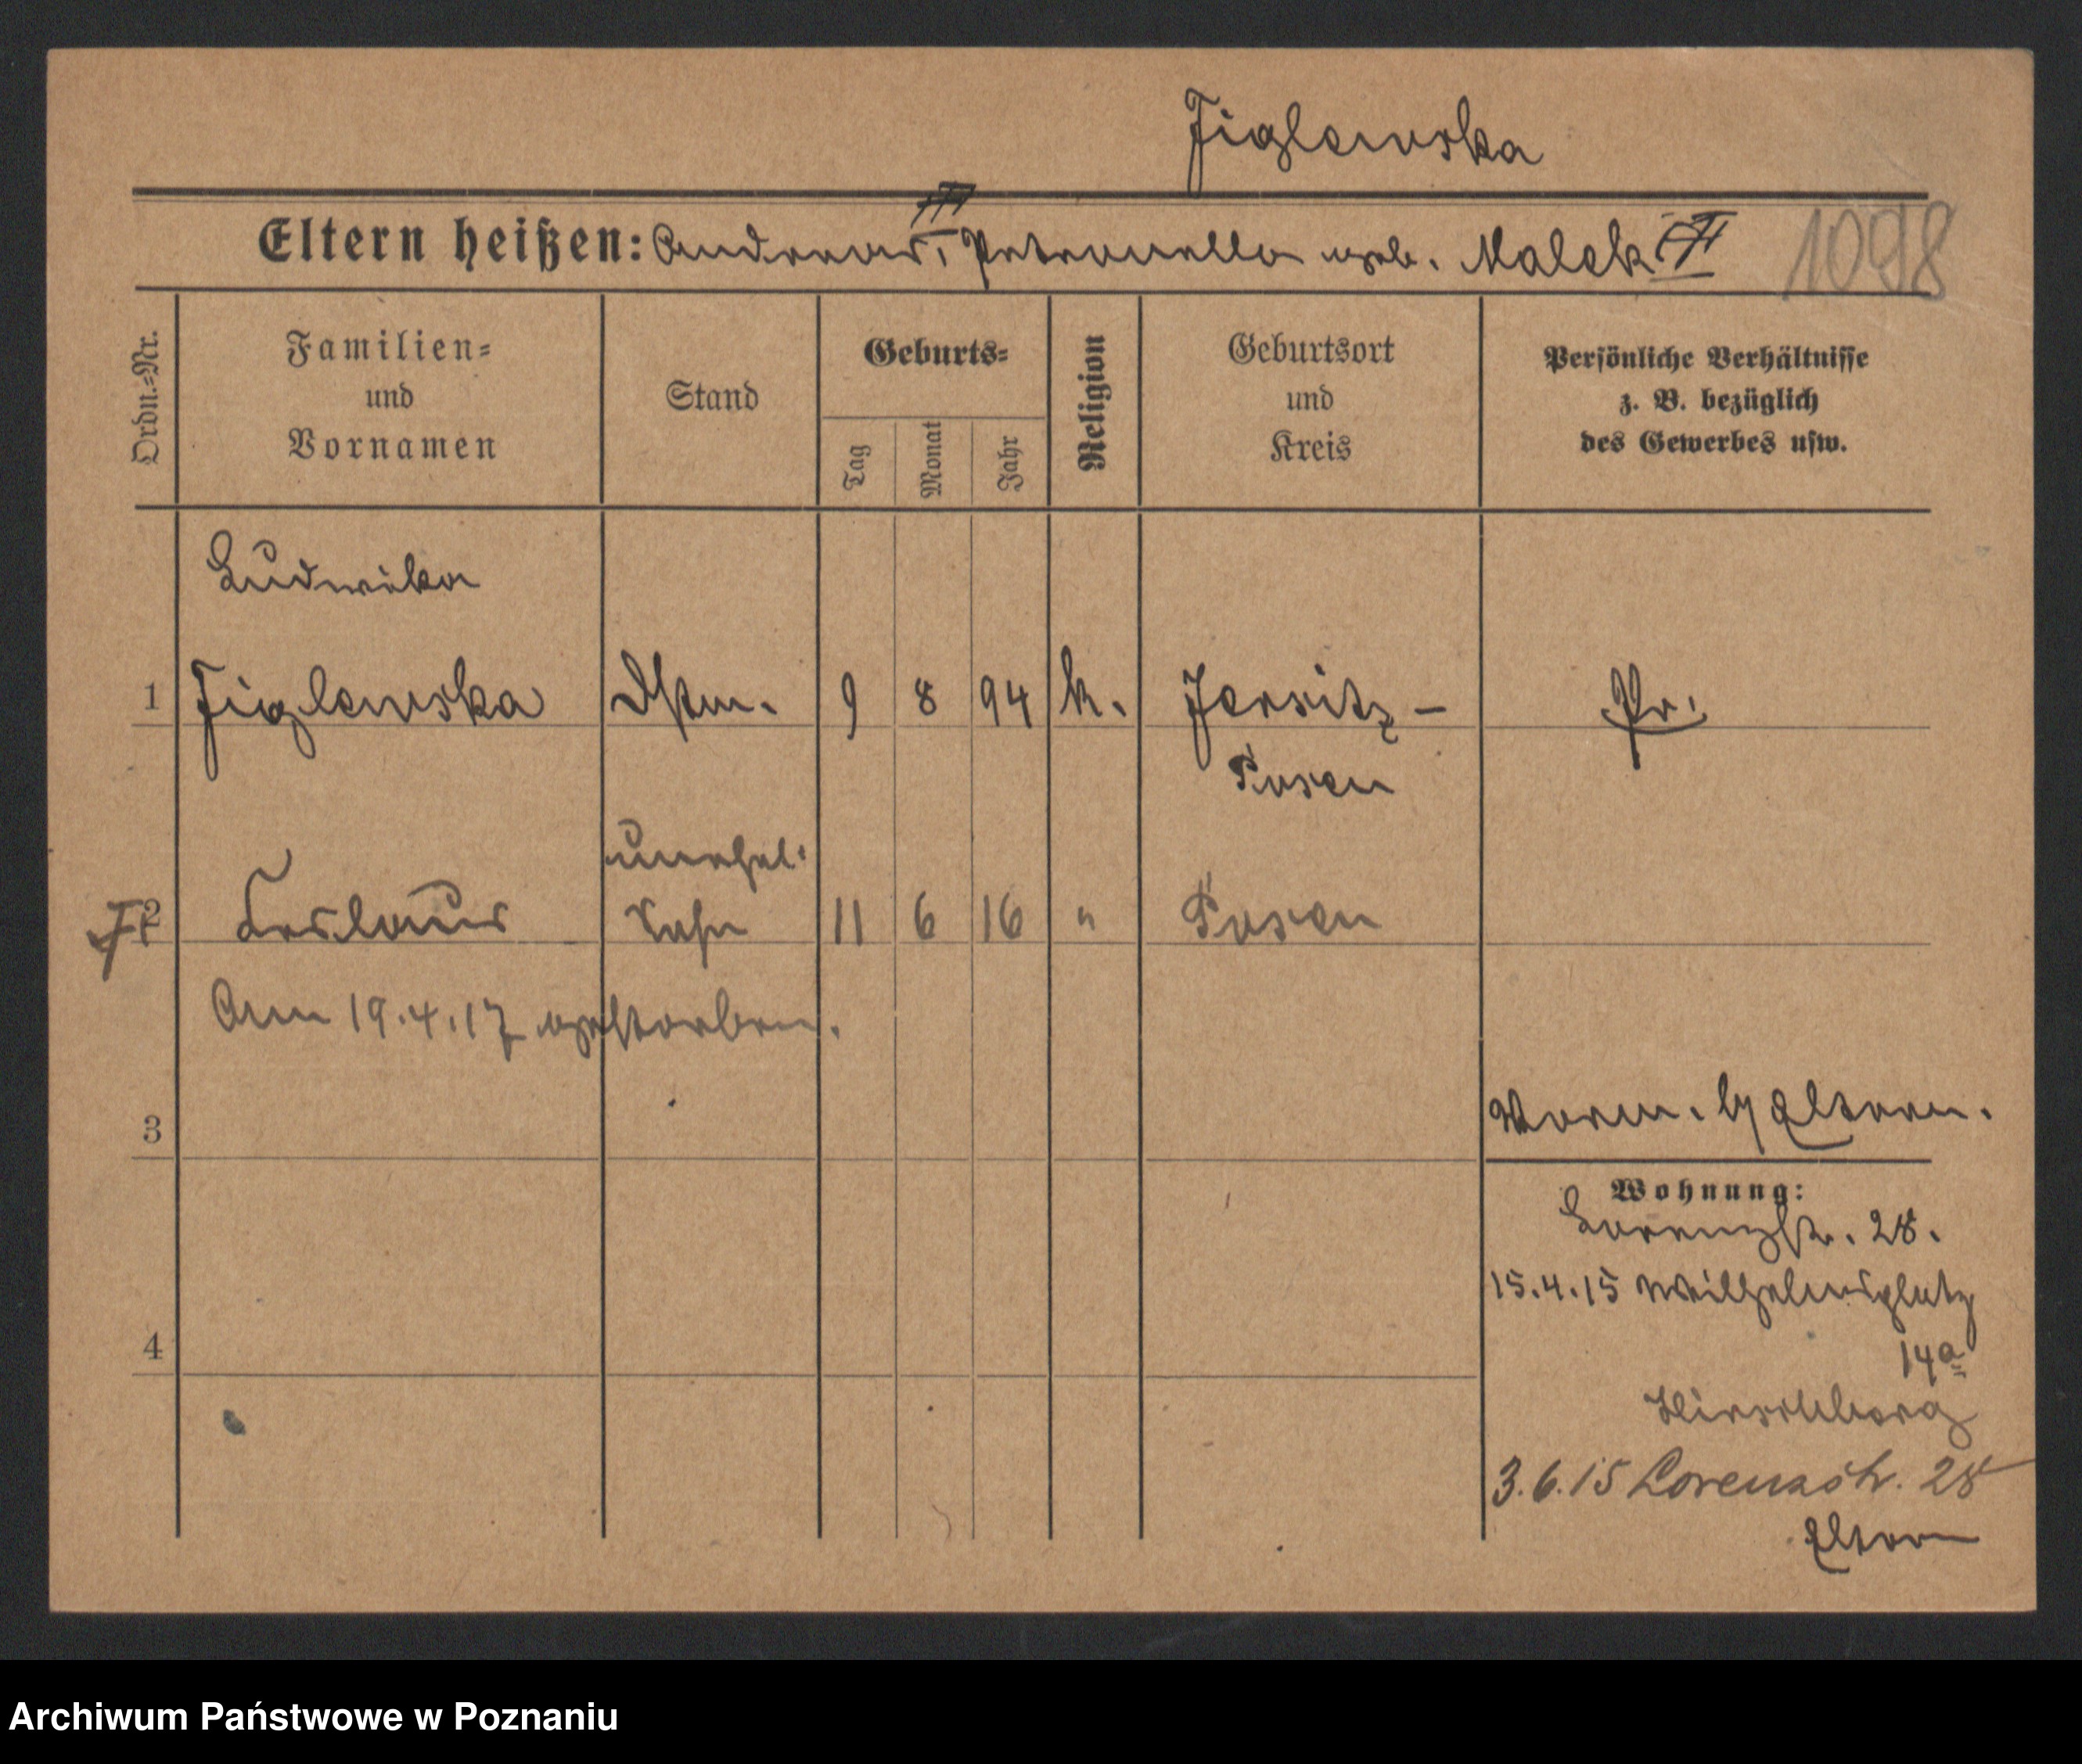 Figlewska
Eltern heißen: Andreas, Petronella geb. Malek
1098
Ordn.=Nr.
Familien=
und
Vornamen
Stand
Geburts=
Tag
Monat
Jahr
Religion
Geburtsort
und
Kreis
Persönliche Verhältnisse
z. B. bezüglich
des Gewerbes usw.
Ludwika
1 Figlewska 9 8 94 k. Jersitz - Pr.
Posen
unehel.
2 Sohn 11 6 16 " Posen
Am 19.4.17 gestorben.
3
Eltern.
Wohnung:
Lorenzstr. 28.
15.4.15 Wilhelmsplatz
14a
4
Hirschberg
3.6.15 Lorenzstr. 28
Eltern
Archiwum Państwowe w Poznaniu